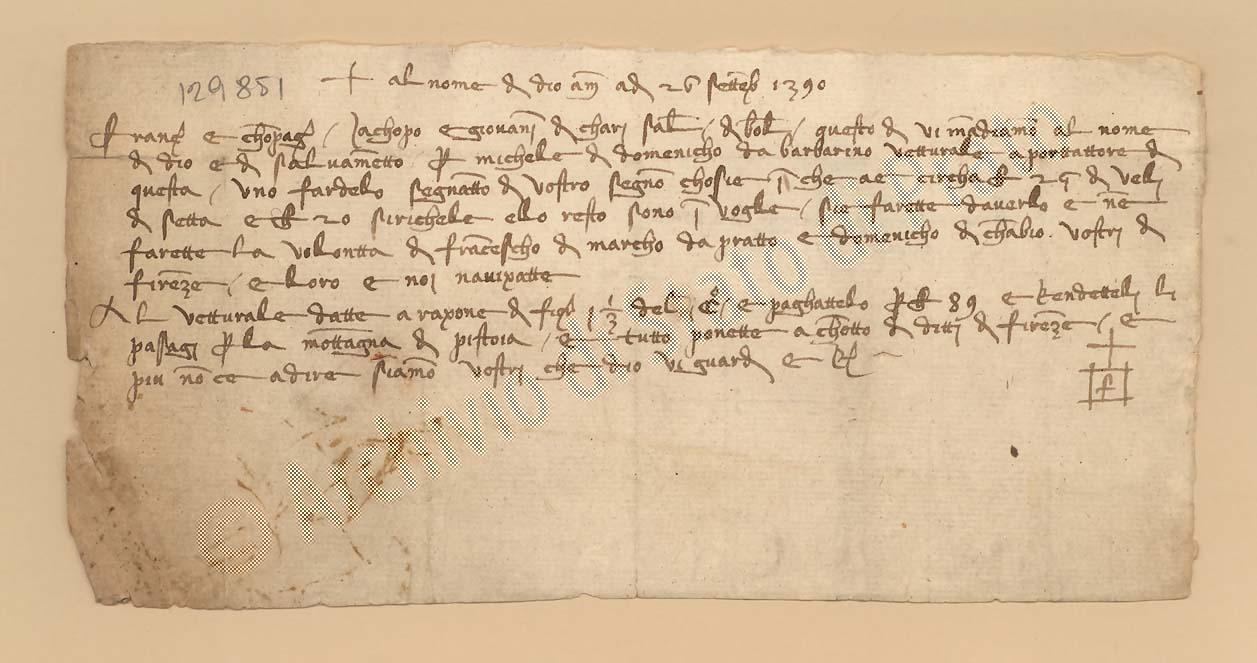 129851
+ al nome di dio am adi 26 settēb 1390
Franc° e chōpag¹ / Jachopo e giovanī di chari sal. / di bol. / questo di vi mādiamo al nome
di dio e di salvamētto p michele di domenicho da barbarino vetturale aportattore di
questa / uno fardelo segnatto di vostro segno chosie ī che ae circha lb 25 di veli
di setta e lb 20 sirichele e llo resto sono ī vogle / sie farette daverlo e ne
farette la volontta di frācescho di marcho da pratto e domenicho di chābio. vostri di
firēze / e loro e noi navixatte
Al vetturale datte a raxone di fior 1 ½ del c° / e paghattelo p lb 89 e rendetteli li
passagi p la mottagna di pistoia / e tutto ponette a chōtto di ditti di firēze / e
piu nō ce a dire siamo vostri che dio vi guardi e
f
© Archivio di Stato di Prato